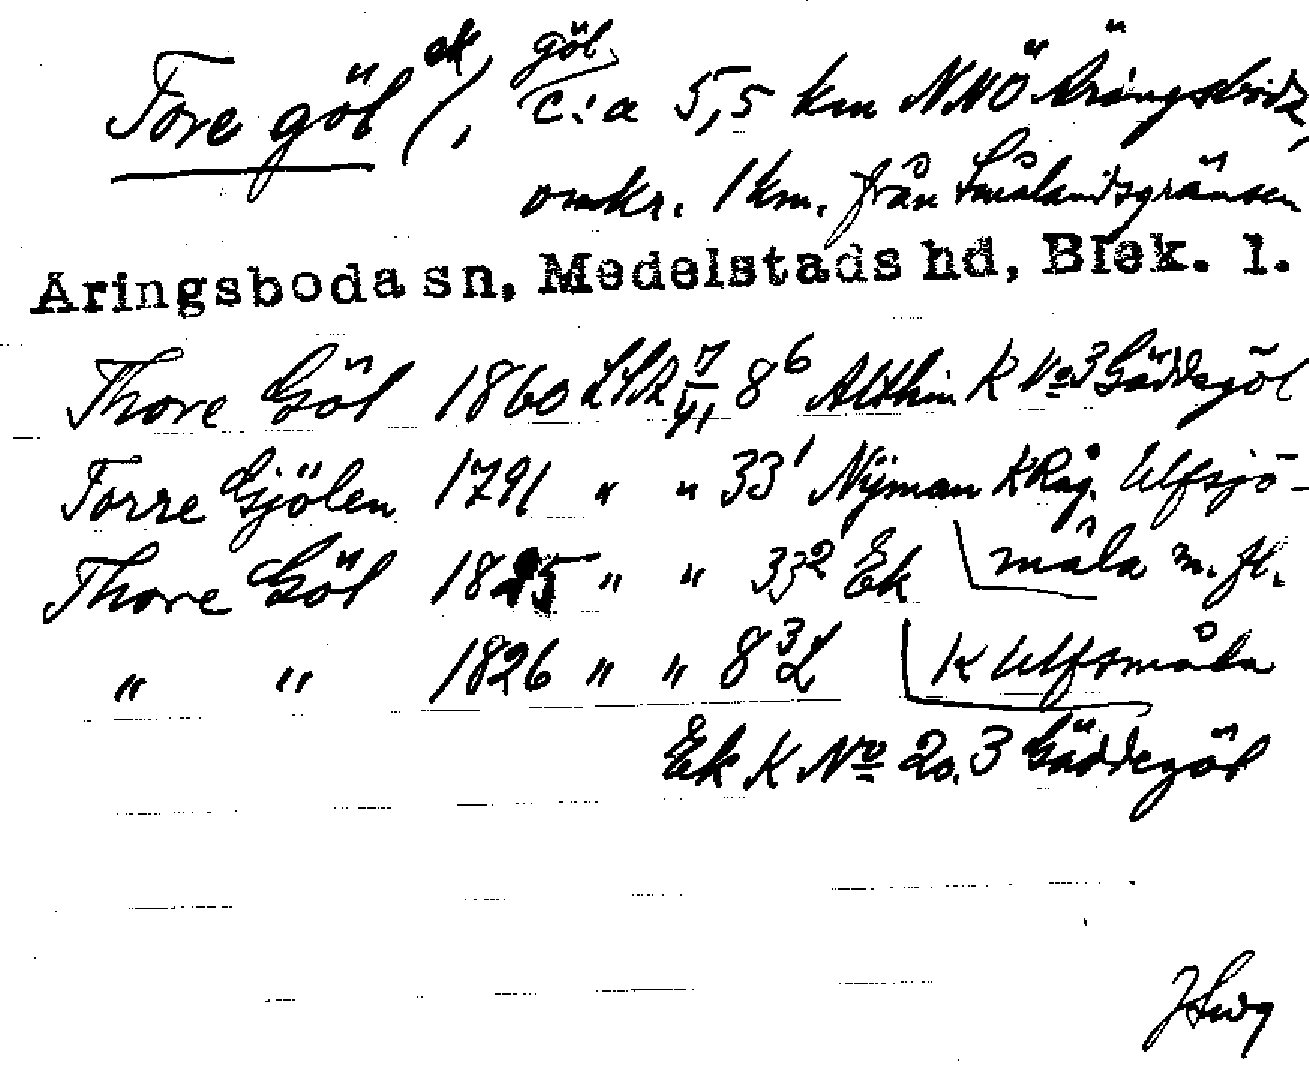 Tore göl ek), göl c:a 5,5 km NNÖ Äringsboda,
omkr. 1 km. från Smålandsgränsen
Äringsboda sn, Medelstads hd, Blek. l.
Thore Göl 1860 LSA 7/41 8⁶ Althin K No 3 Gäddegöl
Torre Gjölen 1791 " " 33¹ Nyman K Råg. Ulfsjö-
Thore Göl 1825 " " 33² Ek måla m. fl.
" " 1826 " " 8³ L K Ulfsmåla
Ek K No 2o. 3 Gäddegöl